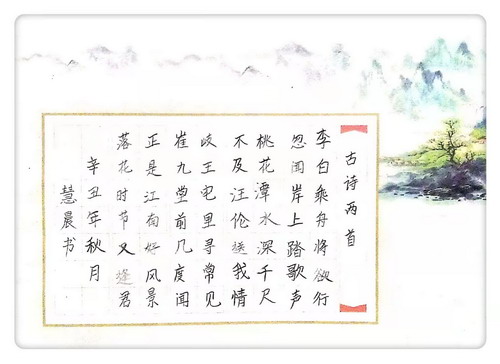 古诗两首
李白乘舟将欲行
忽闻岸上踏歌声
桃花潭水深千尺
不及汪伦送我情
岐王宅里寻常见
崔九堂前几度闻
正是江南好风景
落花时节又逢君
辛丑年秋月
慧晨书